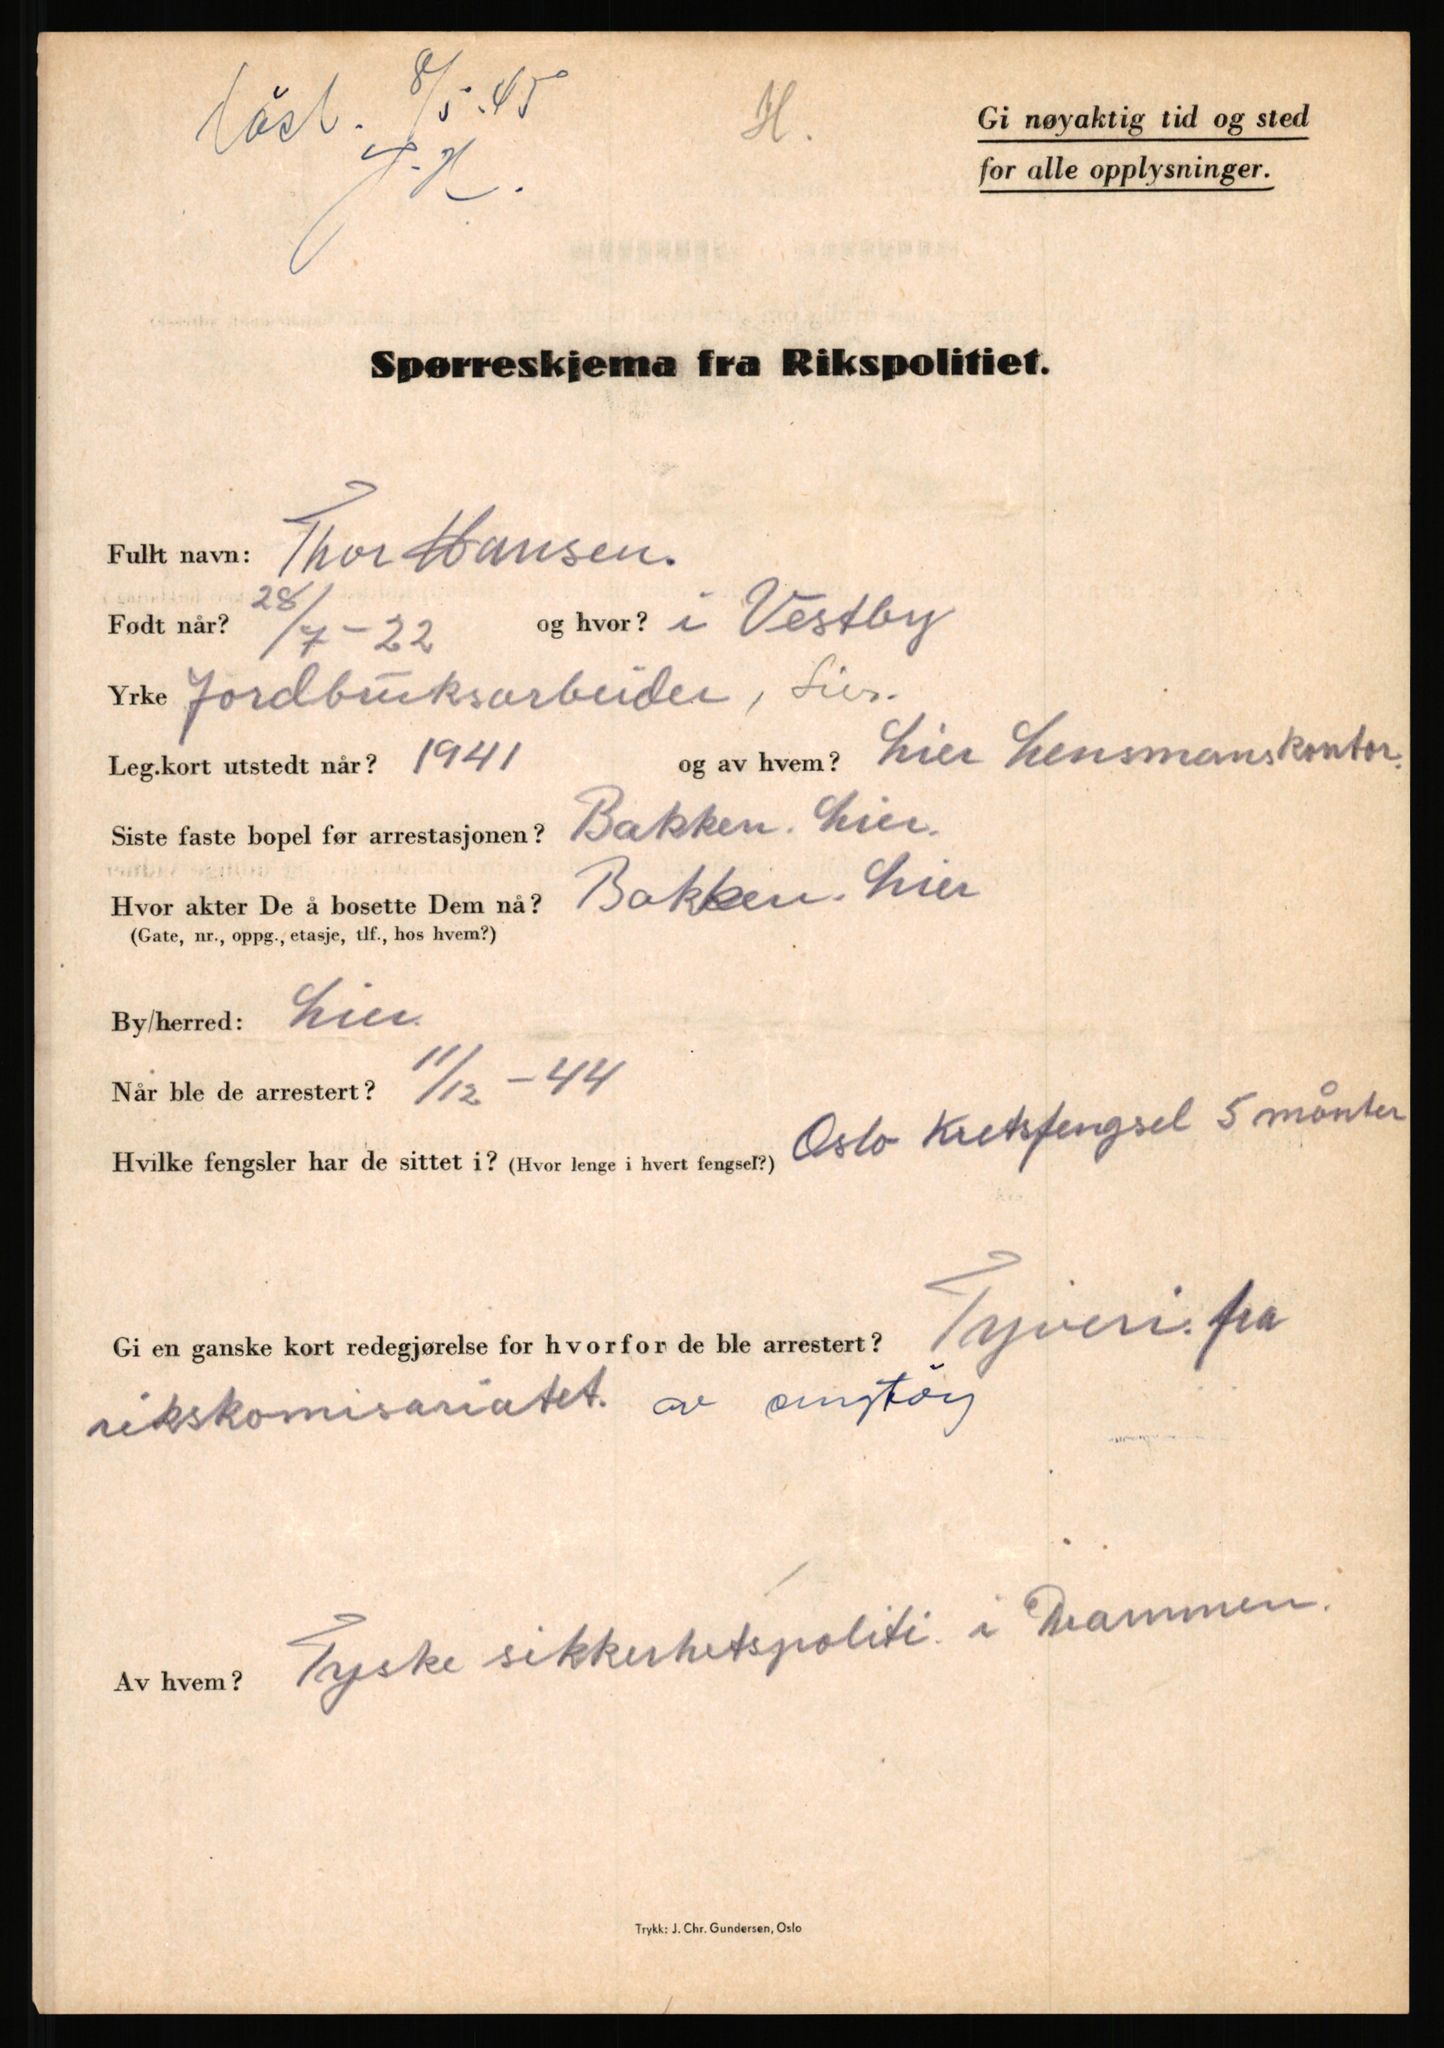 Løsl. 8/5-45
H.
Gi nøyaktig tid og sted
for alle opplysninger.
Spørreskjema fra Rikspolitiet.
Fullt navn: Thor Hansen.
Født når? 28/7-22 og hvor? i Vestby
Yrke Jordbruksarbeider, Lier.
Leg.kort utstedt når? 1941 og av hvem? Lier Lensmanskontor.
Siste faste bopel før arrestasjonen? Bakken. Lier.
Hvor akter De å bosette Dem nå? Bakken. Lier
(Gate, nr., oppg., etasje, tlf., hos hvem?)
By/herred: Lier.
Når ble de arrestert? 11/12-44
Hvilke fengsler har de sittet i? (Hvor lenge i hvert fengsel?) Oslo Kretsfengsel 5 månter
Gi en ganske kort redegjørelse for hvorfor de ble arrestert? Tyveri. fra
rikskomisariatet. av
Av hvem? Tyske sikkerhetspoliti. i Drammen.
Trykk: J. Chr. Gundersen, Oslo